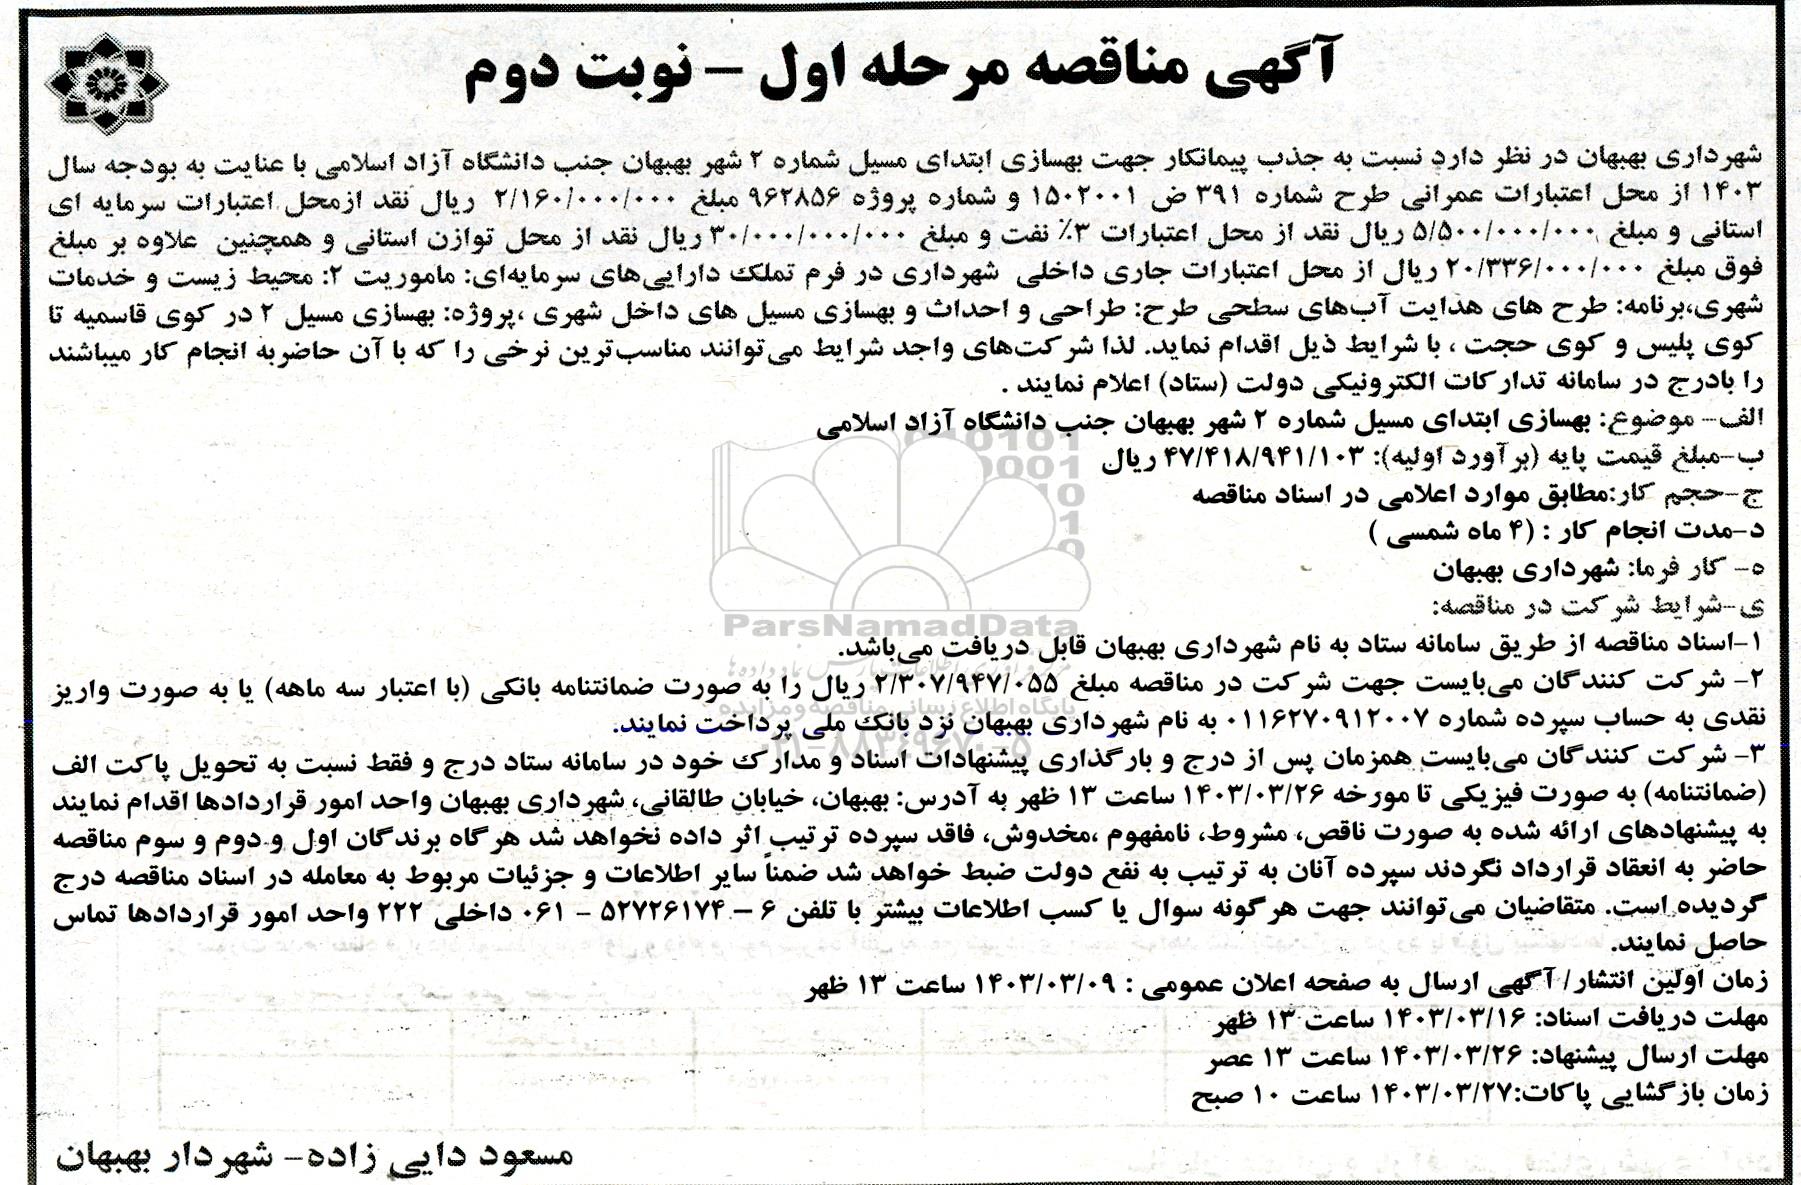 آگهی مناقصه مرحله اول – نوبت دوم
شهرداری بهبهان در نظر دارد نسبت به جذب پیمانکار جهت بهسازی ابتدای مسیل شماره ۲ شهر بهبهان جنب دانشگاه آزاد اسلامی با عنایت به بودجه سال
۱۴۰۳ از محل اعتبارات عمرانی طرح شماره ۳۹۱ ض ۱۵۰۲۰۰۱ و شماره پروژه ۹۶۲۸۵۶ مبلغ ۲/۱۶۰/۰۰۰/۰۰۰ ریال نقد ازمحل اعتبارات سرمایه ای
استانی و مبلغ ۵/۵۰۰/۰۰۰/۰۰۰ ریال نقد از محل اعتبارات ۳٪ نفت و مبلغ ۳۰/۰۰۰/۰۰۰/۰۰۰ ریال نقد از محل توازن استانی و همچنین علاوه بر مبلغ
فوق مبلغ ۲۰/۳۳۶/۰۰۰/۰۰۰ ریال از محل اعتبارات جاری داخلی شهرداری در فرم تملک دارایی‌های سرمایه‌ای: ماموریت ۲: محیط زیست و خدمات
شهری،برنامه: طرح های هدایت آب‌های سطحی طرح: طراحی و احداث و بهسازی مسیل های داخل شهری ،پروژه: بهسازی مسیل ۲ در کوی قاسمیه تا
کوی پلیس و کوی حجت ، با شرایط ذیل اقدام نماید. لذا شرکت‌های واجد شرایط می‌توانند مناسب‌ترین نرخی را که با آن حاضربه انجام کار میباشند
را بادرج در سامانه تدارکات الکترونیکی دولت (ستاد) اعلام نمایند .
الف– موضوع: بهسازی ابتدای مسیل شماره ۲ شهر بهبهان جنب دانشگاه آزاد اسلامی
ب–مبلغ قیمت پایه (برآورد اولیه): ۴۷/۴۱۸/۹۴۱/۱۰۳ ریال
ج–حجم کار:مطابق موارد اعلامی در اسناد مناقصه
د–مدت انجام کار : (۴ ماه شمسی )
ه– کار فرما: شهرداری بهبهان
ی–شرایط شرکت در مناقصه:
ParsNamadData
۱–اسناد مناقصه از طریق سامانه ستاد به نام شهرداری بهبهان قابل دریافت می‌باشد.
۲– شرکت کنندگان می‌بایست جهت شرکت در مناقصه مبلغ ۲/۳۰۷/۹۴۷/۰۵۵ ریال را به صورت ضمانتنامه بانکی (با اعتبار سه ماهه) یا به صورت واریز
پایگاه اطلاع رسانی مناقصه و مزایده
نقدی به حساب سپرده شماره ۰۱۱۶۲۷۰۹۱۲۰۰۷ به نام شهرداری بهبهان نزد بانک ملی پرداخت نمایند.
۰۲۱–۸۸۳۴۹۶۷۰–۵
۳– شرکت کنندگان می‌بایست همزمان پس از درج و بارگذاری پیشنهادات اسناد و مدارک خود در سامانه ستاد درج و فقط نسبت به تحویل پاکت الف
(ضمانتنامه) به صورت فیزیکی تا مورخه ۱۴۰۳/۰۳/۲۶ ساعت ۱۳ ظهر به آدرس: بهبهان، خیابان طالقانی، شهرداری بهبهان واحد امور قراردادها اقدام نمایند
به پیشنهادهای ارائه شده به صورت ناقص، مشروط، نامفهوم ،مخدوش، فاقد سپرده ترتیب اثر داده نخواهد شد هرگاه برندگان اول و دوم و سوم مناقصه
حاضر به انعقاد قرارداد نگردند سپرده آنان به ترتیب به نفع دولت ضبط خواهد شد ضمناً سایر اطلاعات و جزئیات مربوط به معامله در اسناد مناقصه درج
گردیده است. متقاضیان می‌توانند جهت هرگونه سوال یا کسب اطلاعات بیشتر با تلفن ۶ – ۵۲۷۲۶۱۷۴ – ۰۶۱ داخلی ۲۲۲ واحد امور قراردادها تماس
حاصل نمایند.
زمان اولین انتشار/ آگهی ارسال به صفحه اعلان عمومی : ۱۴۰۳/۰۳/۰۹ ساعت ۱۳ ظهر
مهلت دریافت اسناد: ۱۴۰۳/۰۳/۱۶ ساعت ۱۳ ظهر
مهلت ارسال پیشنهاد: ۱۴۰۳/۰۳/۲۶ ساعت ۱۳ عصر
زمان بازگشایی پاکات:۱۴۰۳/۰۳/۲۷ ساعت ۱۰ صبح
مسعود دایی زاده– شهردار بهبهان